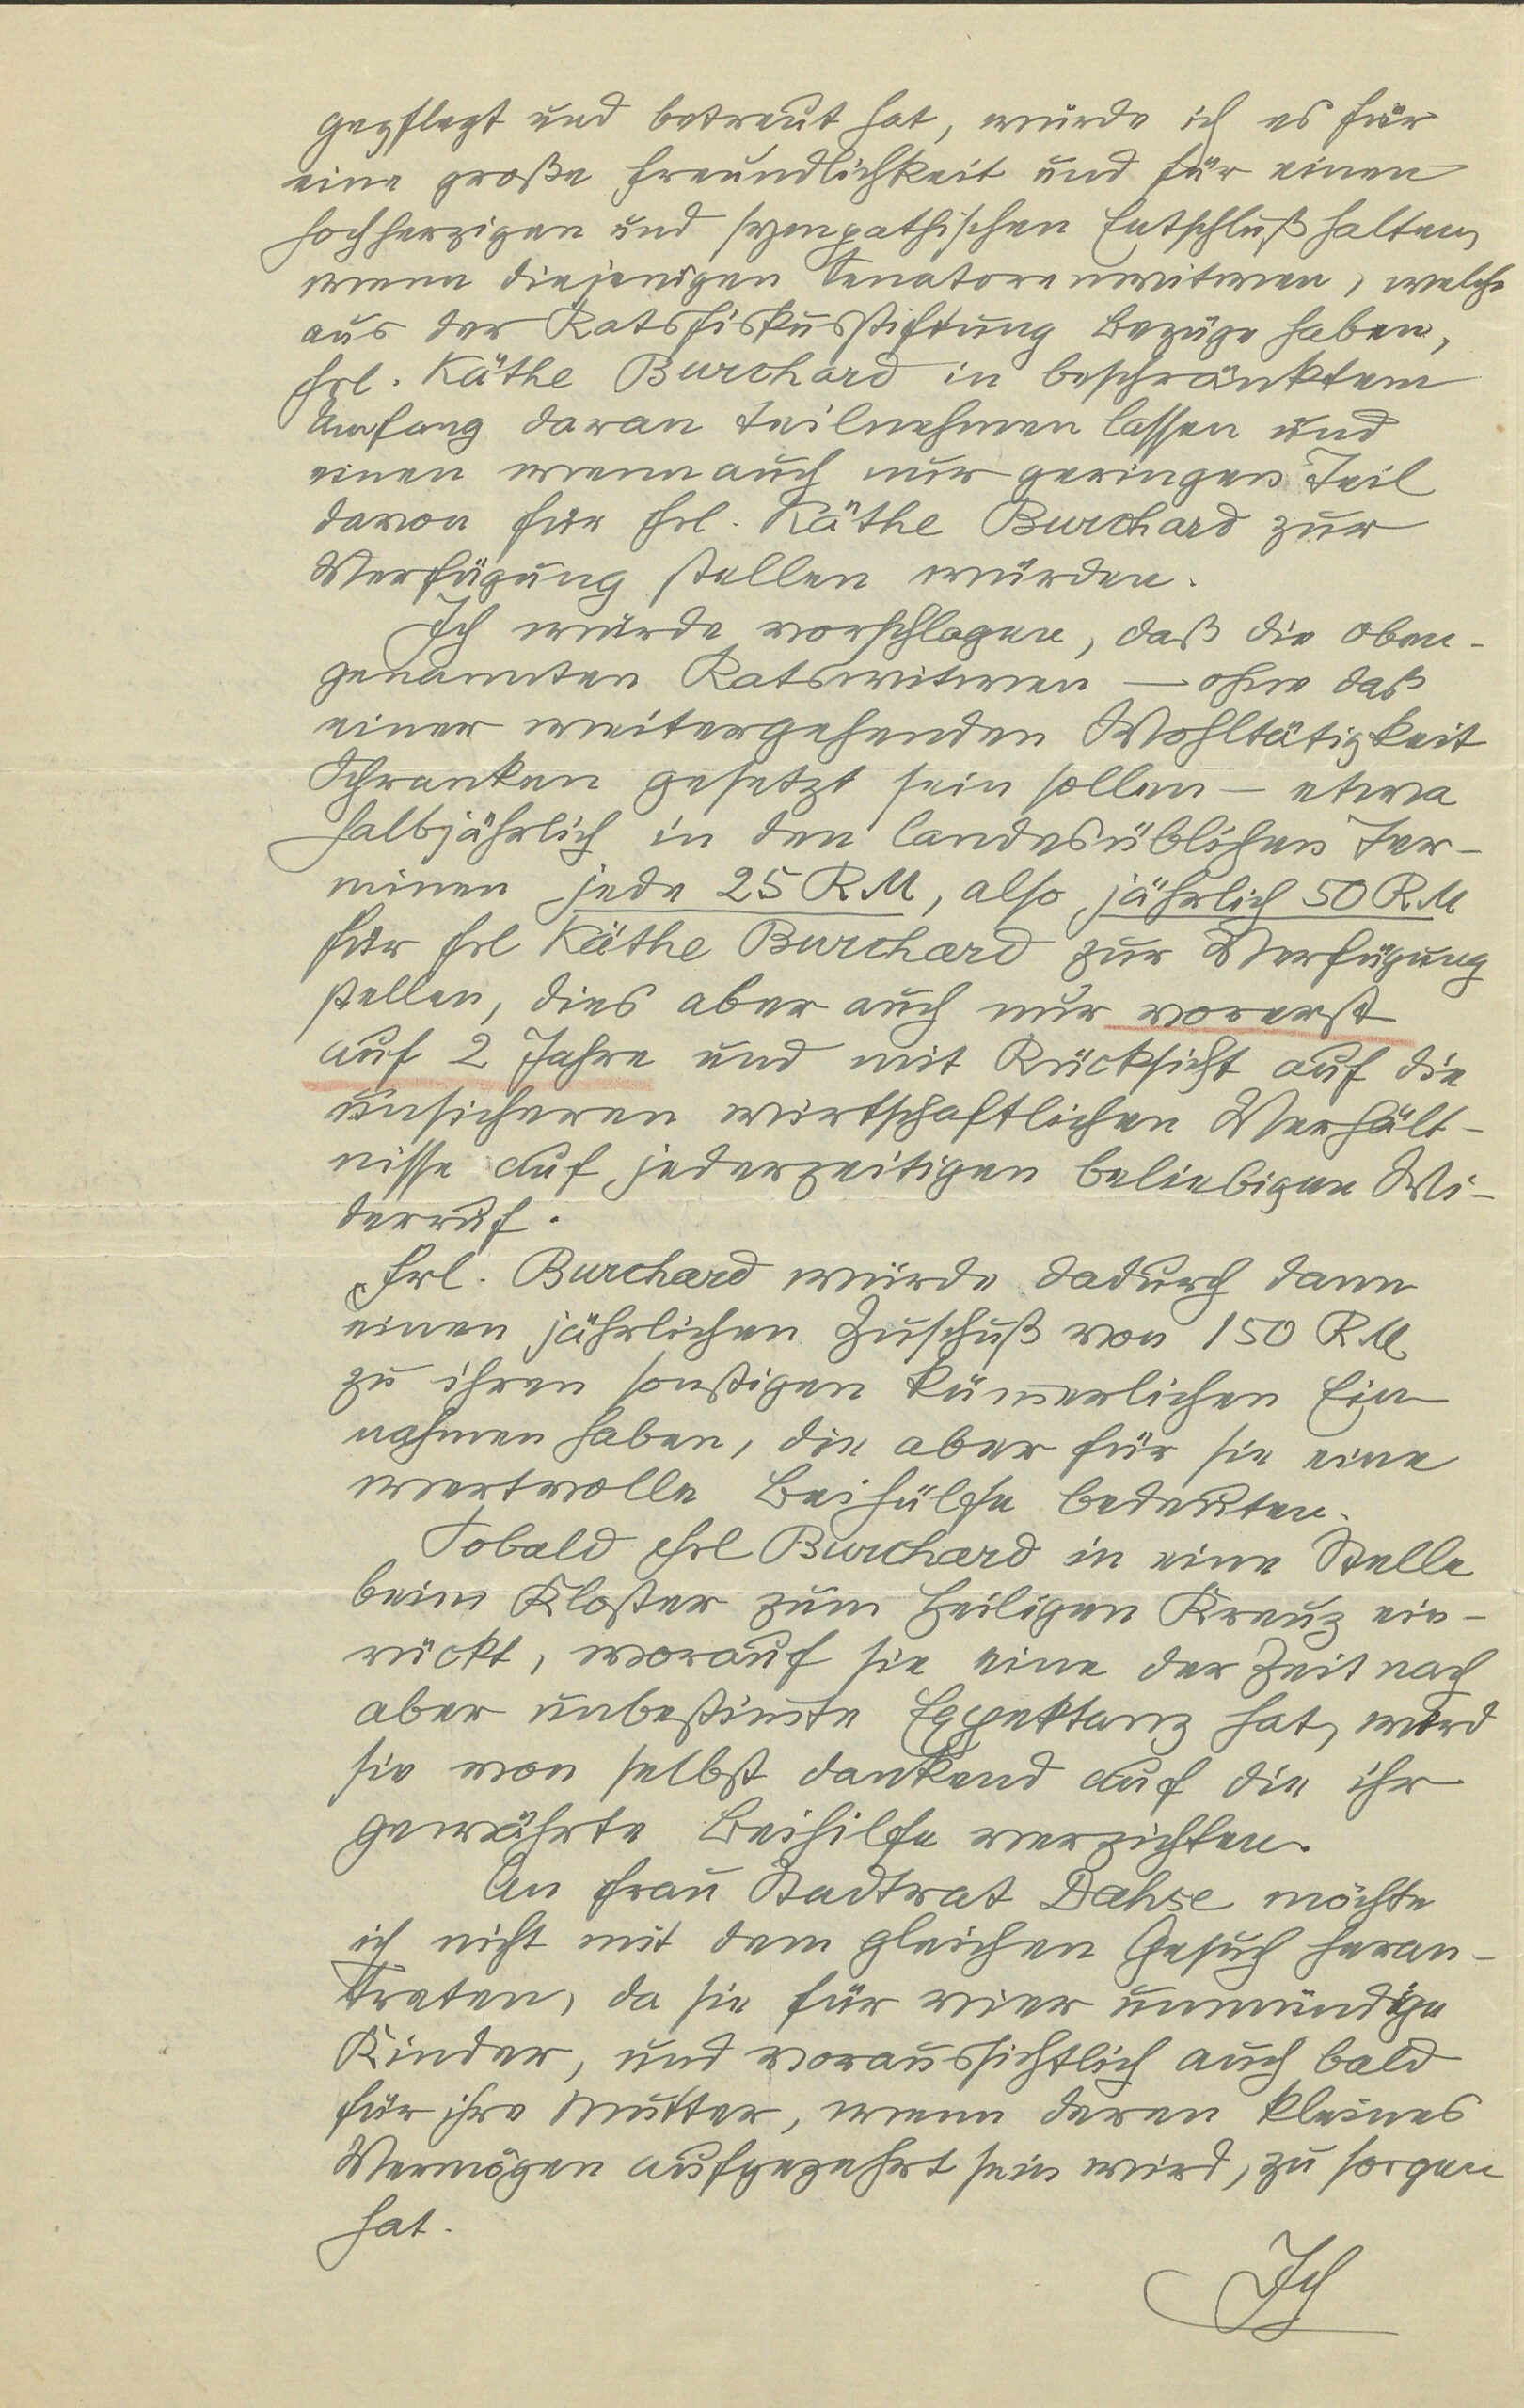 gepflegt und betreut hat, würde ich es für
eine große Freundlichkeit und für einen
hochherzigen und sympathischen Entschluß halten,
wenn diejenigen Senatorenwitwen, welche
aus der Ratsfiskusstiftung Bezüge haben,
Frl. Käthe Burchard in beschränktem
Umfang daran teilnehmen lassen und
einen wenn auch nur geringen Teil
davon für Frl. Käthe Burchard zur
Verfügung stellen würden.
Ich würde vorschlagen, daß die oben-
genannten Ratswitwen — ohne daß
einer weitergehenden Wohltätigkeit
Schranken gesetzt sein sollen — etwa
halbjährlich in den landesüblichen Ter-
minen jede 25 RM, also jährlich 50 RM
für Frl Käthe Burchard zur Verfügung
stellen, dies aber auch nur vorerst
auf 2 Jahre und mit Rücksicht auf die
unsicheren wirtschaftlichen Verhält-
nisse auf jederzeitigen beliebigen Wi-
derruf.
Frl. Burchard würde dadurch dann
einen jährlichen Zuschuß von 150 RM
zu ihren sonstigen kümerlichen Ein
nahmen haben, die aber für sie eine
wertvolle Beihülfe bedeuten.
Sobald Frl Burchard in eine Stelle
beim Kloster zum Heiligen Kreuz ein-
rückt, worauf sie eine der Zeit nach
aber unbestimte Expektanz hat, wird
sie von selbst dankend auf die ihr
gewährte Beihilfe verzichten.
An Frau Stadtrat Dahse möchte
ich nicht mit dem gleichen Gesuch heran-
treten, da sie für vier unmündige
Kinder, und voraussichtlich auch bald
für ihre Mutter, wenn deren kleines
Vermögen aufgezehrt sein wird, zu sorgen
hat.
Ich